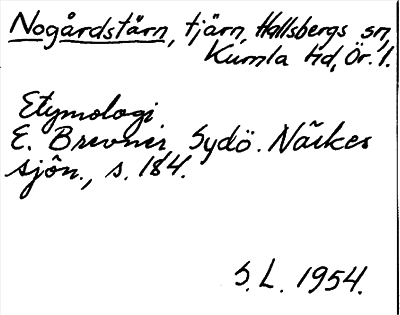 Nogårdstärn, tjärn, Hallsbergs sn,
Kumla hd, Ör. l.
Etymologi
E. Brevner, Sydö. Närkes
sjön., s. 184.
S.L. 1954.